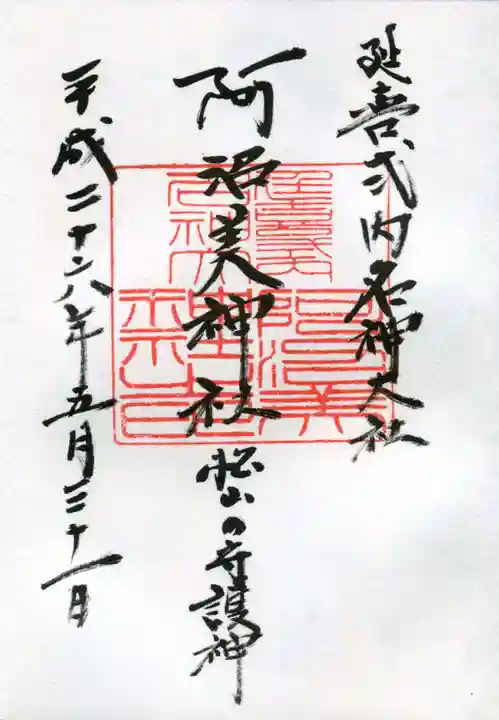 延喜式内名神大社
阿沼美神社
松山の守護神
平成二十八年五月三十一日